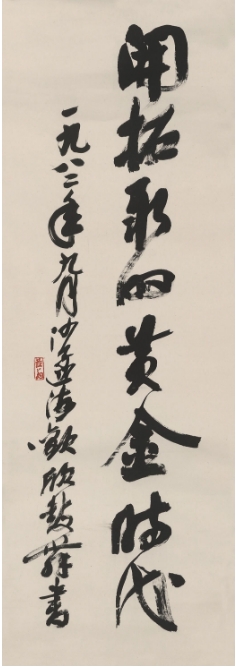 開拓新的黄金時代
一九八二年九月沙孟海歡欣鼓舞書